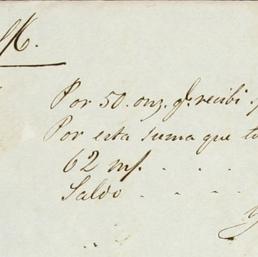 Por 50. onz. q.e recibi.
Por esta suma que to
62 m/.
Saldo